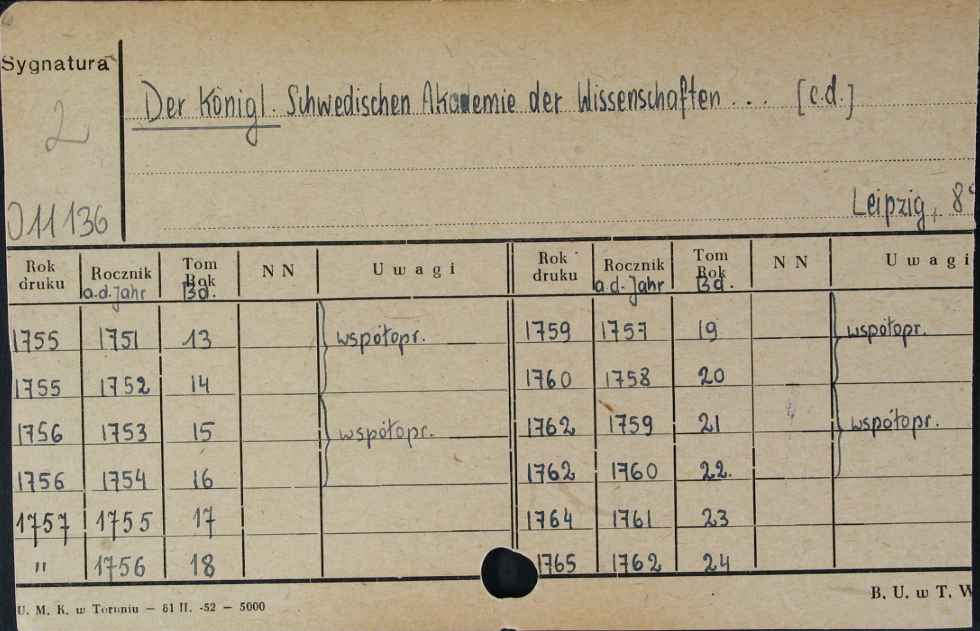 Sygnatura
2
011136
Der Königl. Schwedischen Akademie der Wissenschaften ... [c.d.]
Leipzig, 8°
Rok druku | Rocznik a.d. Jahr | Tom Rok Bd. | NN | Uwagi | Rok druku | Rocznik a.d. Jahr | Tom Rok Bd. | NN | Uwagi
1755 | 1751 | 13 | | współopr. | 1759 | 1757 | 19 | | współopr.
1755 | 1752 | 14 | | | 1760 | 1758 | 20
1756 | 1753 | 15 | | współopr. | 1762 | 1759 | 21 | | współopr.
1756 | 1754 | 16 | | | 1762 | 1760 | 22.
1757 | 1755 | 17 | | | 1764 | 1761 | 23
" | 1756 | 18 | | | 1765 | 1762 | 24
U. M. K. w Toruniu — 81 II. -52 — 5000
B. U. w T. W